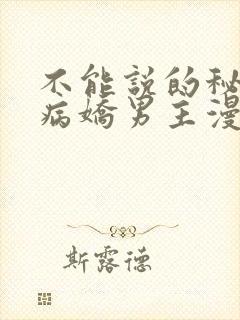 不能説的秘
病嬌男主漫
斯露德